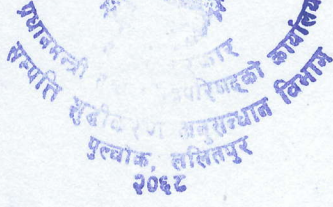 प्रधानमन्त्री परिषद्को कार्यालय
सम्पत्ति शुद्धीकरण अनुसन्धान विभाग
पुल्चोक, ललितपुर
२०६८